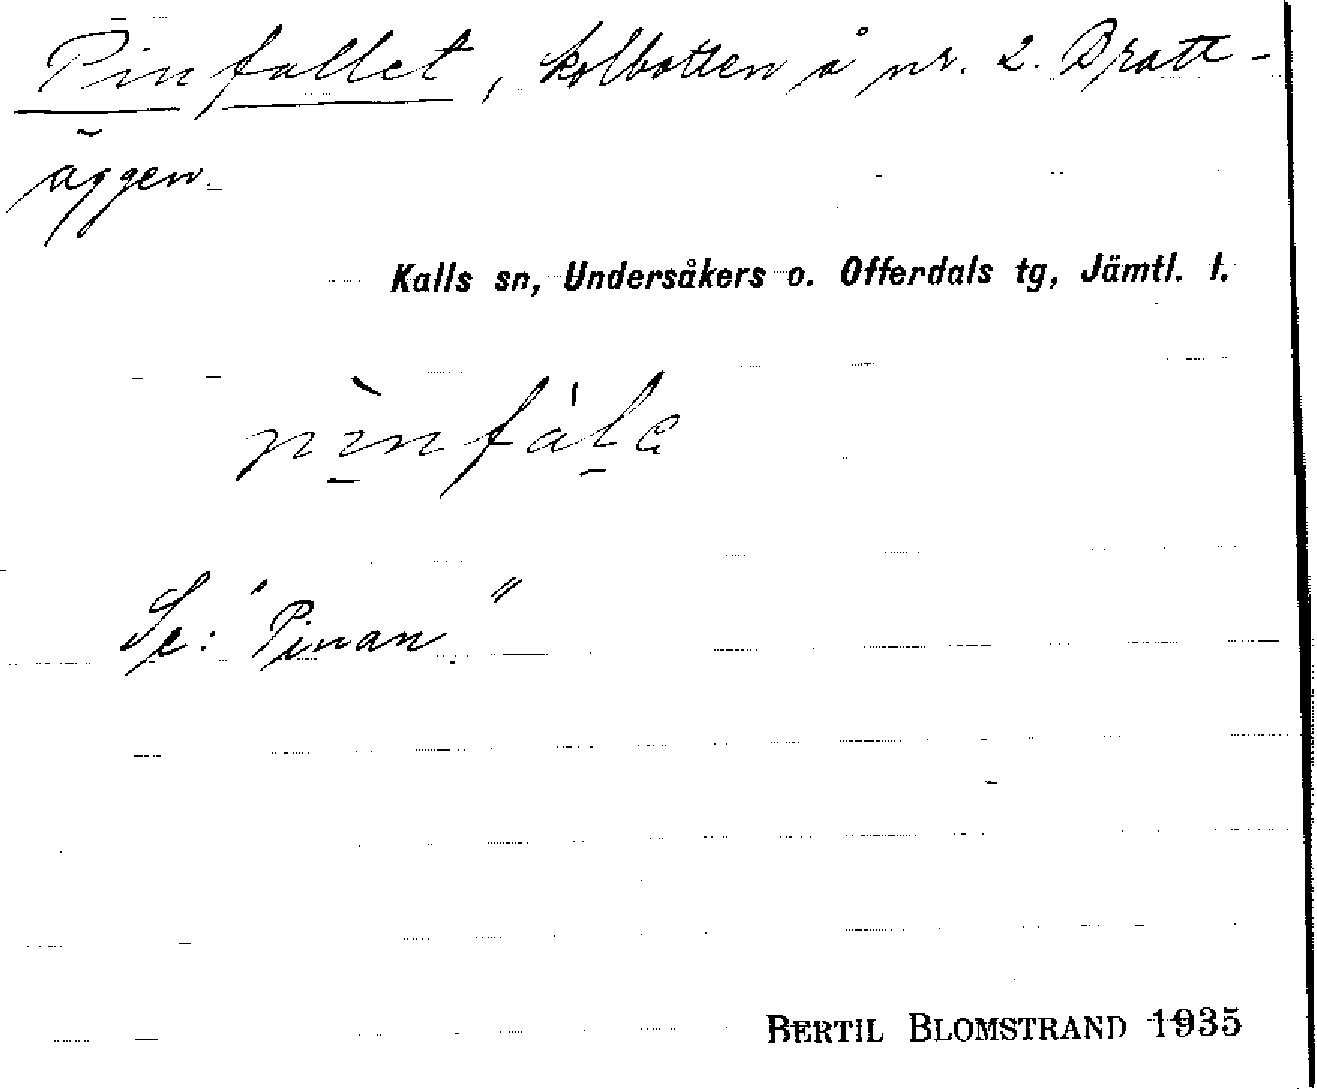 Pinfallet, kolbotten å nr. 2. Bratt-
äggen.
Kalls sn, Undersåkers o. Offerdals tg, Jämtl. l.
Se: "Pinan"
BERTIL BLOMSTRAND 1935